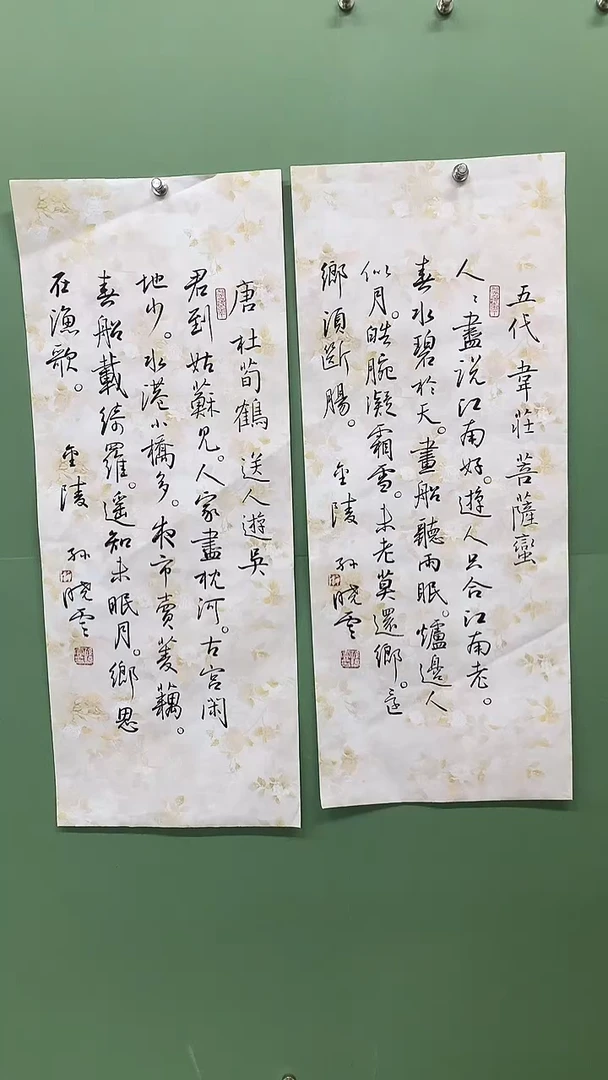 五代 韋莊 菩薩蠻
人〻盡說江南好。遊人只合江南老。
春水碧於天。畫船聽雨眠。爐邊人
似月。皓腕凝霜雪。未老莫還鄉。還
鄉須斷腸。 金陵 孙晓雲
唐 杜荀鶴 送人遊吳
君到姑蘇見。人家盡枕河。古宮閑
地少。水港小橋多。夜市賣菱藕。
春船載綺羅。遥知未眠月。鄉思
在漁歌。 金陵 孙晓雲